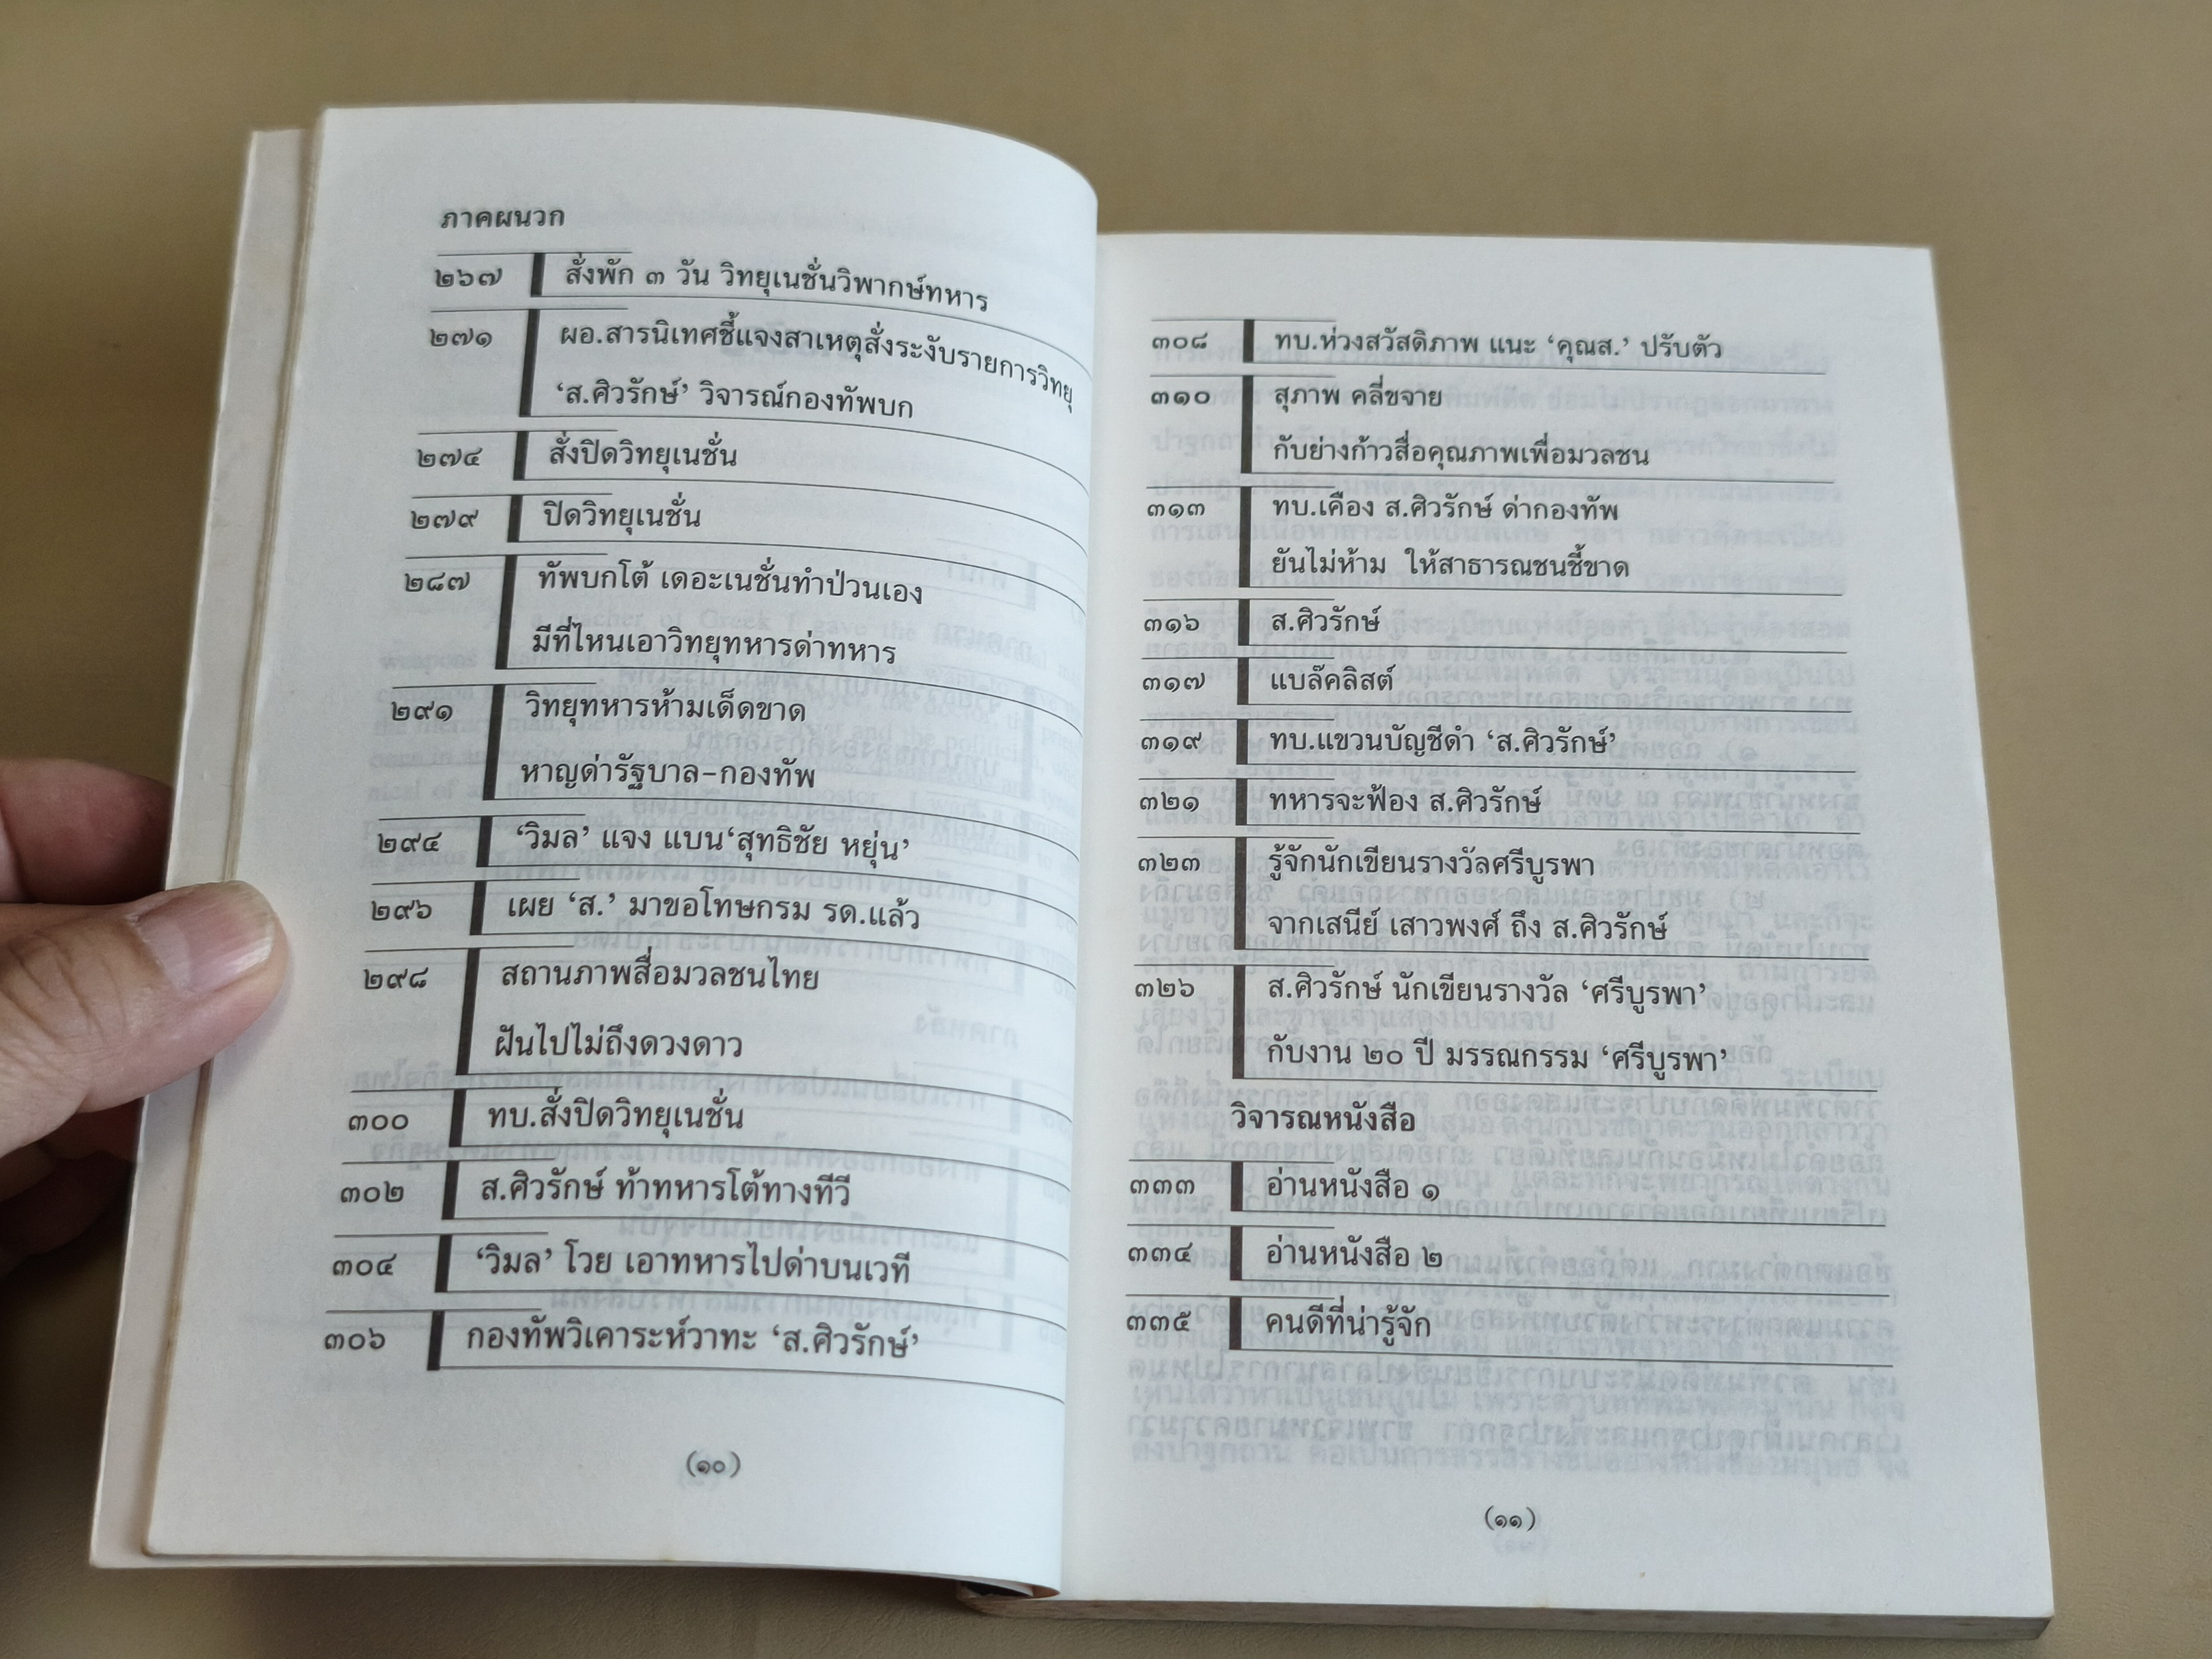 ภาคผนวก
๒๖๗ สั่งพัก ๓ วัน วิทยุเนชั่นวิพากษ์ทหาร
๒๗๑ ผอ.สารนิเทศชี้แจงสาเหตุสั่งระงับรายการวิทยุ
‘ส.ศิวรักษ์’ วิจารณ์กองทัพบก
๒๗๔ สั่งปิดวิทยุเนชั่น
๒๗๙ ปิดวิทยุเนชั่น
๒๘๗ ทัพบกโต้ เดอะเนชั่นทำป่วนเอง
มีที่ไหนเอาวิทยุทหารด่าทหาร
๒๙๑ วิทยุทหารห้ามเด็ดขาด
หาญด่ารัฐบาล-กองทัพ
๒๙๔ ‘วิมล’ แจง แบน‘สุทธิชัย หยุ่น’
๒๙๖ เผย ‘ส.’ มาขอโทษกรม รด.แล้ว
๒๙๘ สถานภาพสื่อมวลชนไทย
ฝันไปไม่ถึงดวงดาว
๓๐๐ ทบ.สั่งปิดวิทยุเนชั่น
๓๐๒ ส.ศิวรักษ์ ท้าทหารโต้ทางทีวี
๓๐๔ ‘วิมล’ โวย เอาทหารไปด่าบนเวที
๓๐๖ กองทัพวิเคาระห์วาทะ ‘ส.ศิวรักษ์’
(๑๐)
๓๐๘ ทบ.ห่วงสวัสดิภาพ แนะ ‘คุณส.’ ปรับตัว
๓๑๐ สุภาพ คลี่ขจาย
กับย่างก้าวสื่อคุณภาพเพื่อมวลชน
๓๑๓ ทบ.เคือง ส.ศิวรักษ์ ด่ากองทัพ
ยันไม่ห้าม ให้สาธารณชนชี้ขาด
๓๑๖ ส.ศิวรักษ์
๓๑๗ แบล๊คลิสต์
๓๑๙ ทบ.แขวนบัญชีดำ ‘ส.ศิวรักษ์’
๓๒๑ ทหารจะฟ้อง ส.ศิวรักษ์
๓๒๓ รู้จักนักเขียนรางวัลศรีบูรพา
จากเสนีย์ เสาวพงศ์ ถึง ส.ศิวรักษ์
๓๒๖ ส.ศิวรักษ์ นักเขียนรางวัล ‘ศรีบูรพา’
กับงาน ๒๐ ปี มรรณกรรม ‘ศรีบูรพา’
วิจารณหนังสือ
๓๓๓ อ่านหนังสือ ๑
๓๓๔ อ่านหนังสือ ๒
๓๓๕ คนดีที่น่ารู้จัก
(๑๑)